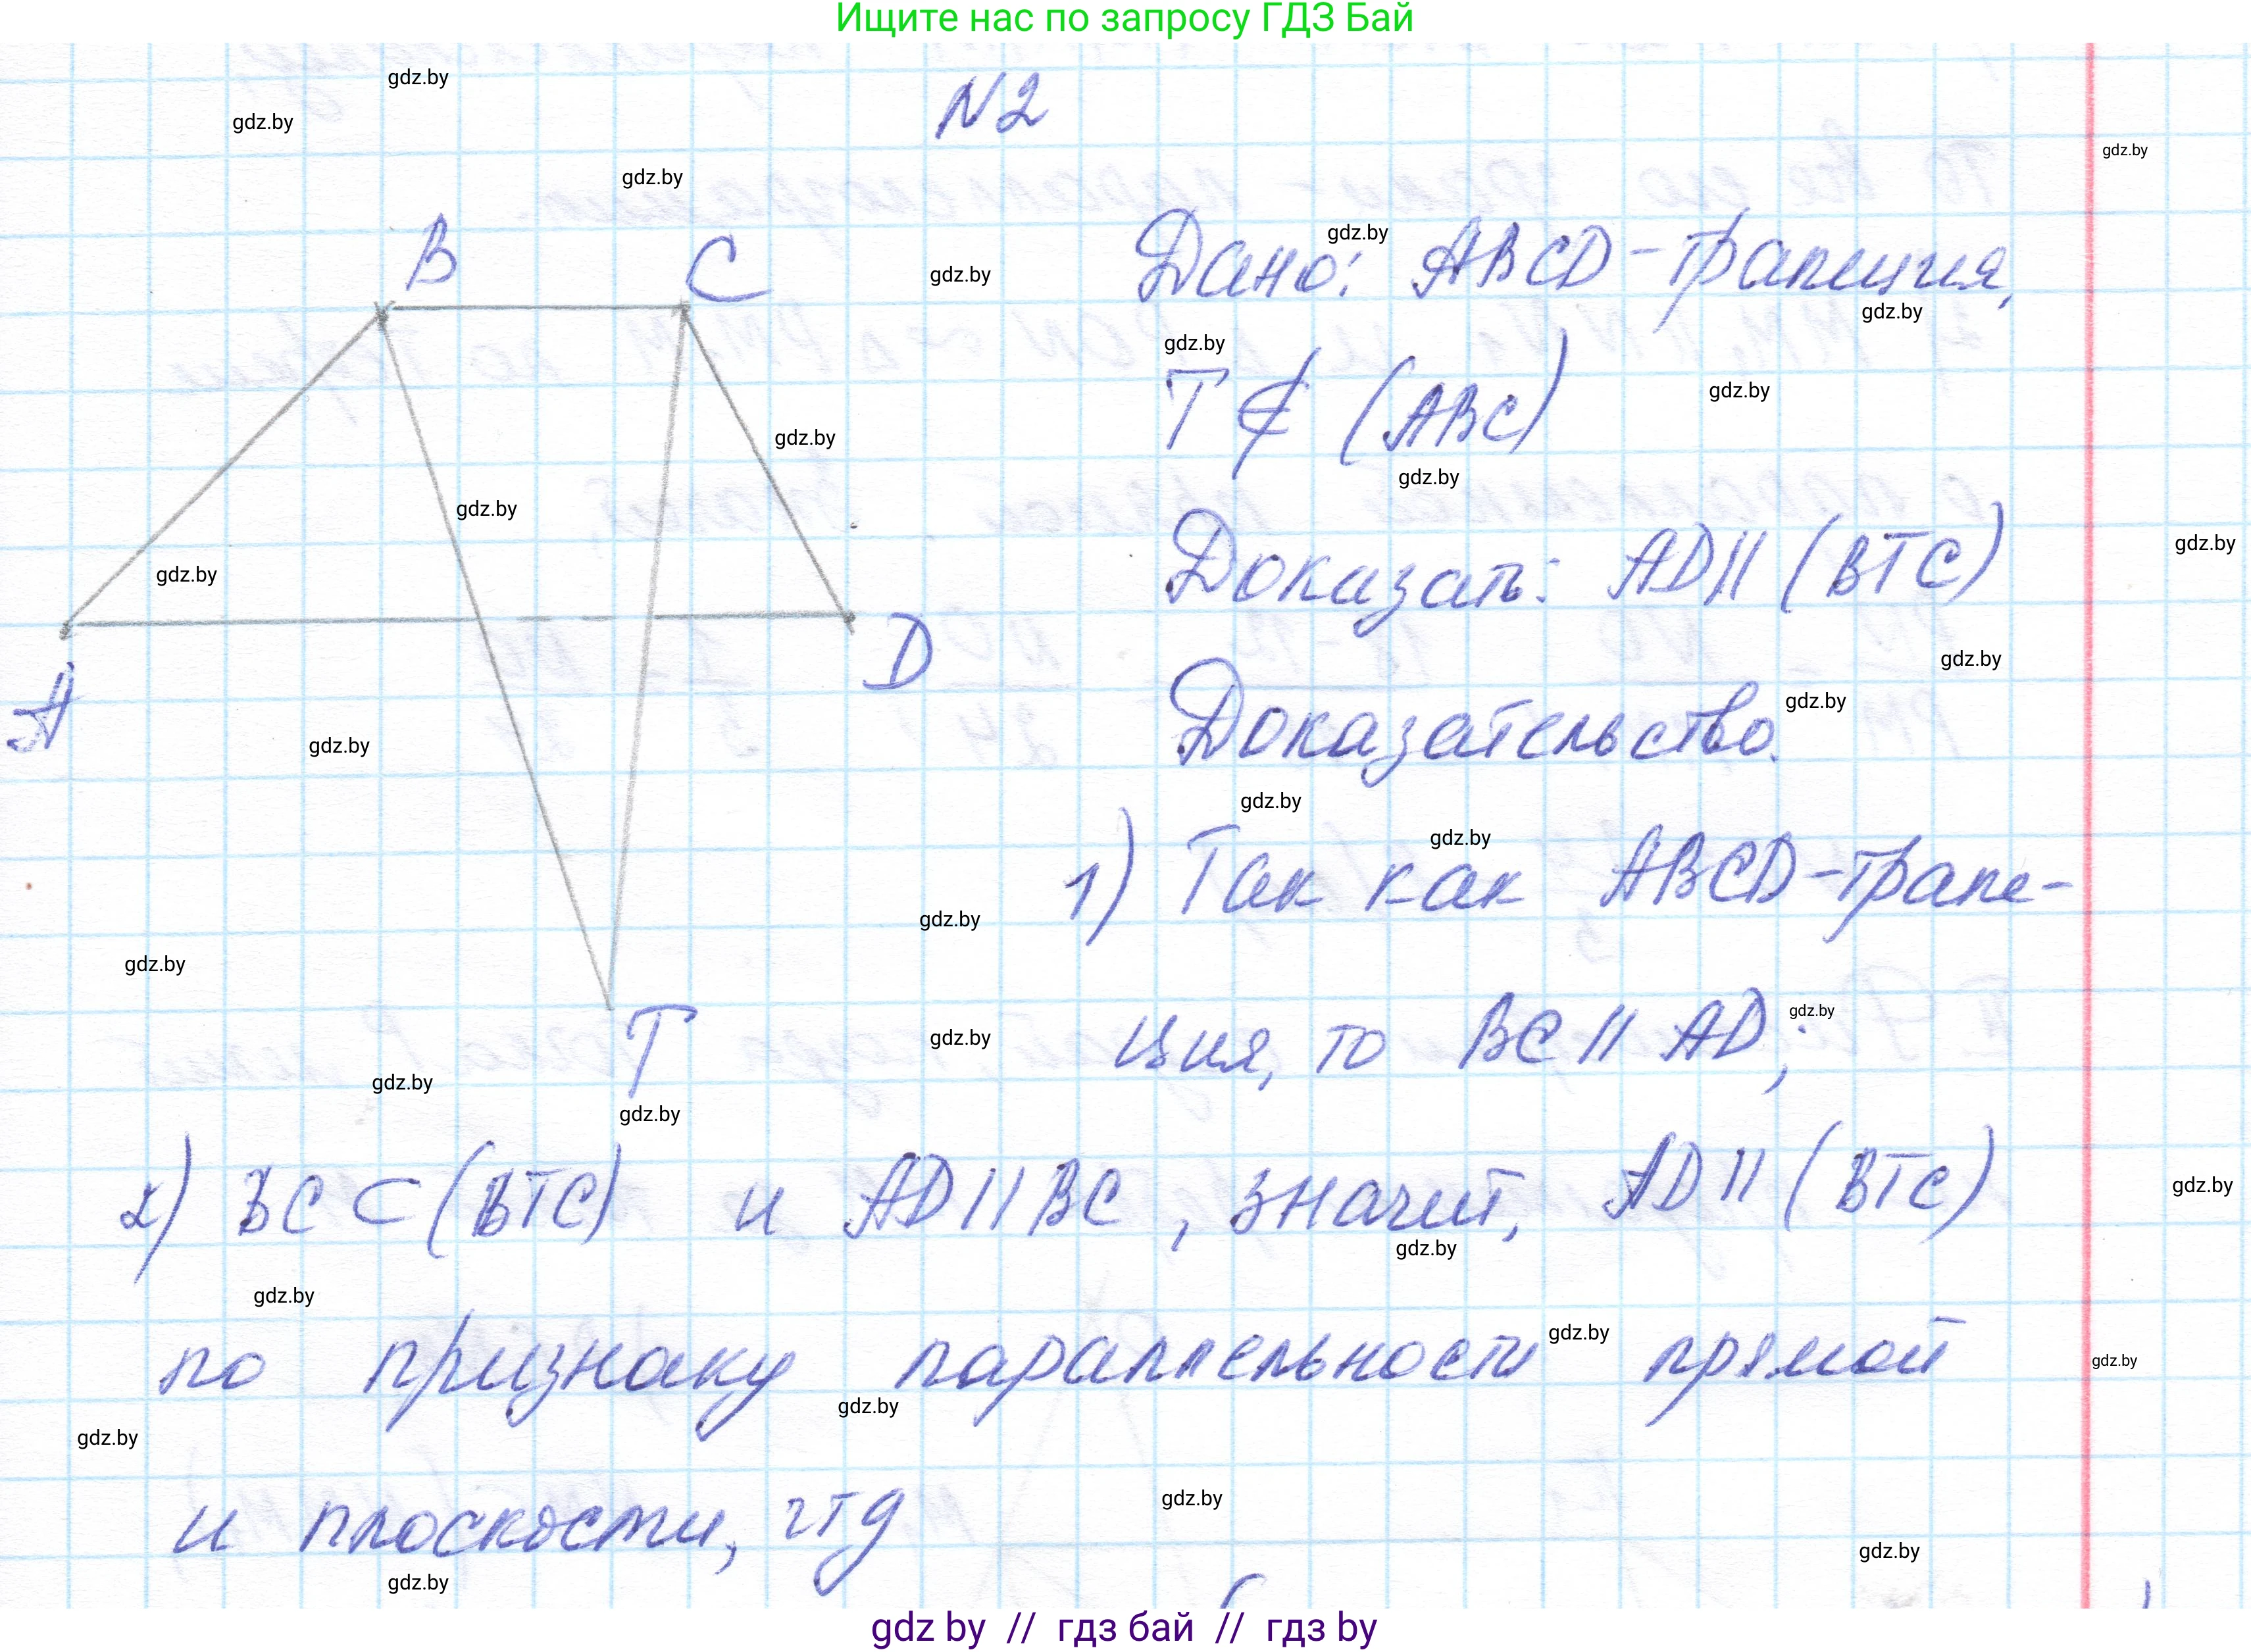 Ищите нас по запросу ГДЗ Бай
gdz.by
N2
gdz.by
gdz.by
gdz.by
B
C
Дано: ABCD - трапеция,
gdz.by
gdz.by
gdz.by
gdz.by
T ∉ (ABC)
gdz.by
gdz.by
gdz.by
gdz.by
gdz.by
Доказать: AD || (BTC)
gdz.by
gdz.by
A
D
gdz.by
Доказательство.
gdz.by
gdz.by
gdz.by
gdz.by
1) Так как ABCD - трапе-
gdz.by
gdz.by
ция, то BC || AD;
gdz.by
gdz.by
T
gdz.by
gdz.by
2) BC ⊂ (BTC) и AD || BC, значит, AD || (BTC)
gdz.by
gdz.by
gdz.by
по признаку параллельности прямой
gdz.by
gdz.by
gdz.by
gdz.by
и плоскости, чтд
gdz.by
gdz.by
gdz.by
gdz by // гдз бай // гдз by